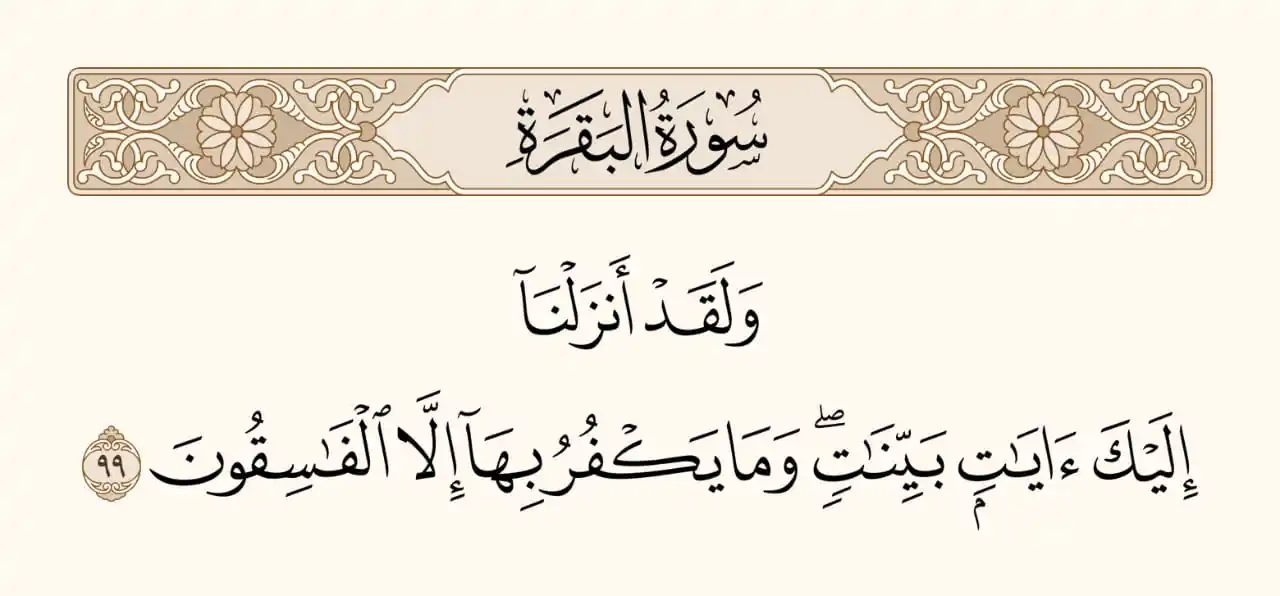 سُورَةُ البَقَرَةِ
وَلَقَدْ أَنزَلْنَآ
إِلَيْكَ ءَايَٰتٍۭ بَيِّنَٰتٍۖ وَمَا يَكْفُرُ بِهَآ إِلَّا ٱلْفَٰسِقُونَ ٩٩